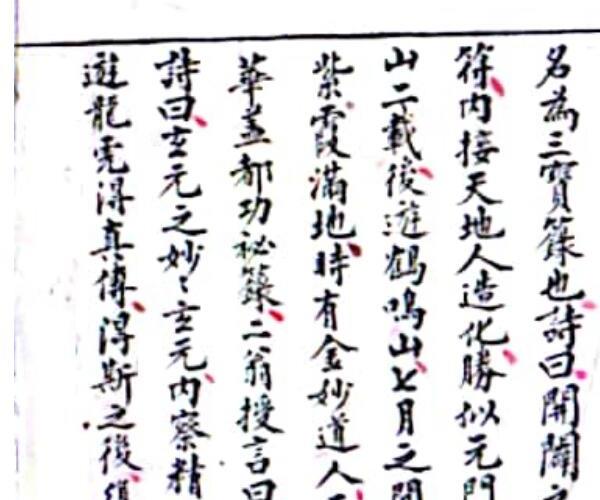 名為三寶籙也詩曰開闢
符内接天地人造化勝似元門
山二載後遊鶴鳴山七月之間
紫霞滿地時有金妙道人
華盖都功祕籙二翁授言曰
詩曰玄元之妙〻玄元内察精
遊龍虎得真傳得斯之後